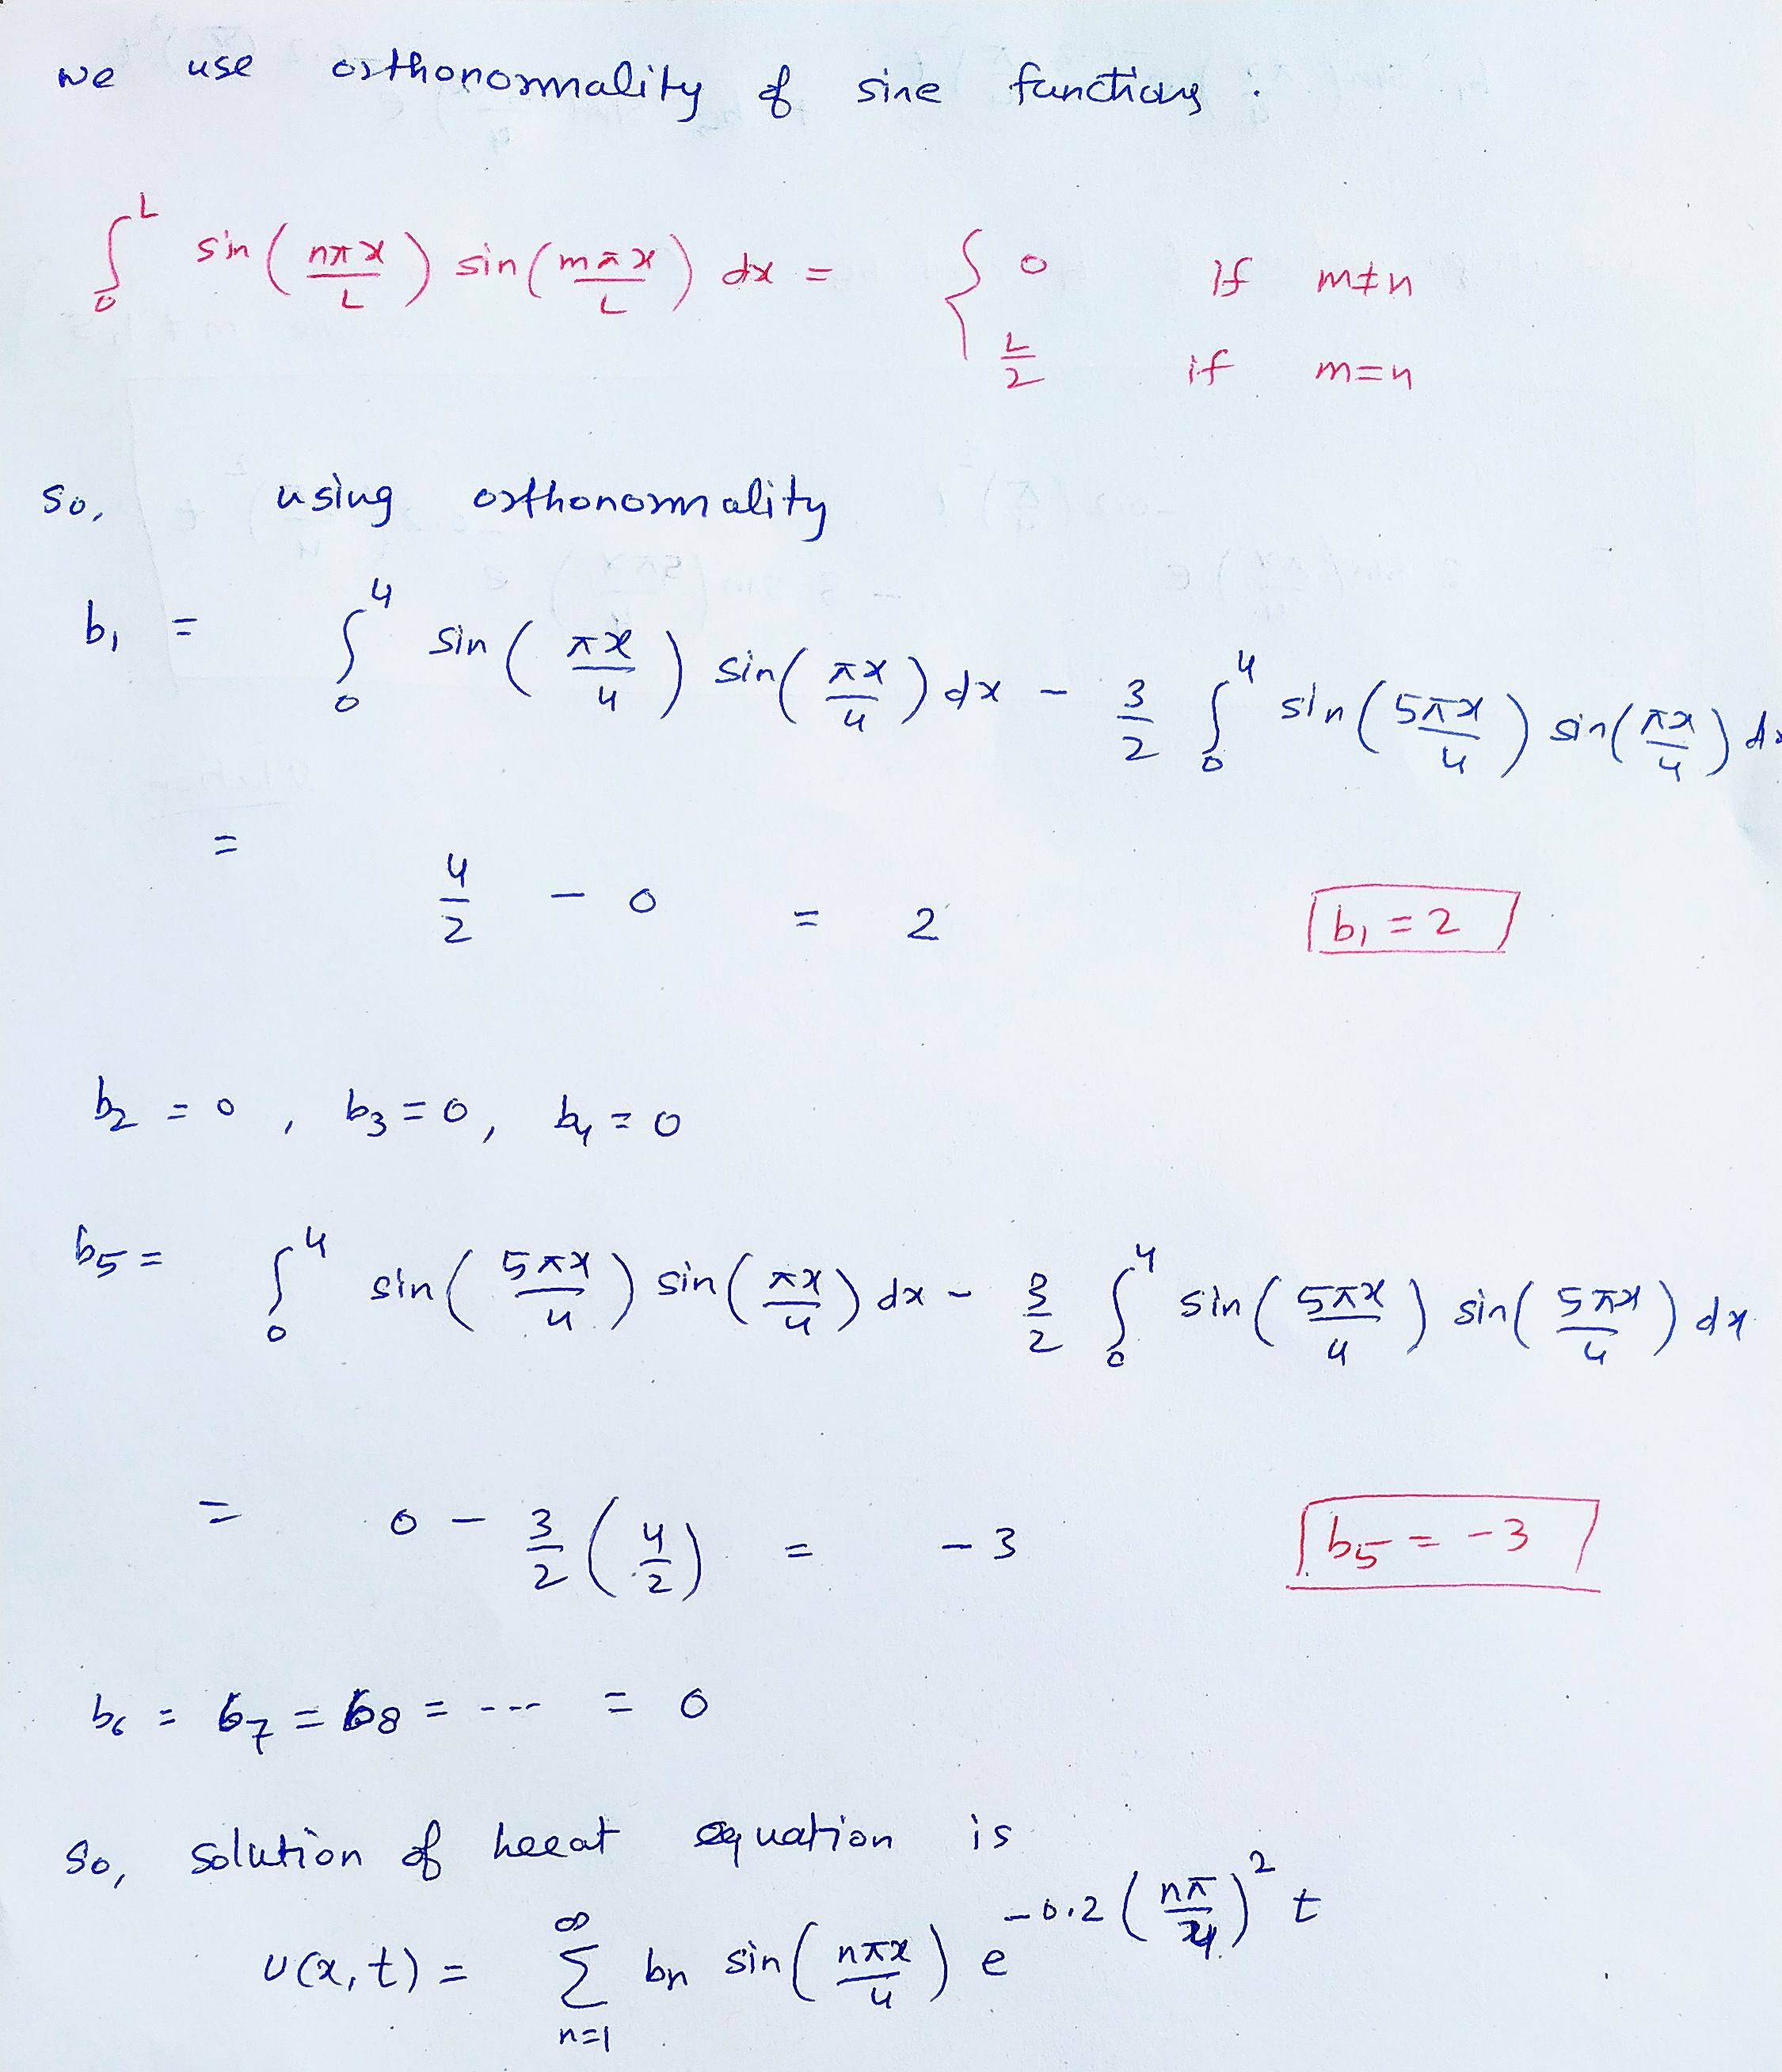 we use orthonormality of sine functions :
∫₀ᴸ sin(nπx/L) sin(mπx/L) dx = { 0 if m≠n
L/2 if m=n
so, using orthonormality
b₁ = ∫₀⁴ sin(πx/4) sin(πx/4) dx - 3/2 ∫₀⁴ sin(5πx/4) sin(πx/4) dx
= 4/2 - 0 = 2 b₁ = 2
b₂ = 0, b₃ = 0, b₄ = 0
b₅ = ∫₀⁴ sin(5πx/4) sin(πx/4) dx - 3/2 ∫₀⁴ sin(5πx/4) sin(5πx/4) dx
= 0 - 3/2 (4/2) = -3 b₅ = -3
b₆ = b₇ = b₈ = --- = 0
So, solution of heeat equation is
u(x,t) = ∑ₙ₌₁^∞ bₙ sin(nπx/4) e^(-0.2(nπ/4)² t)